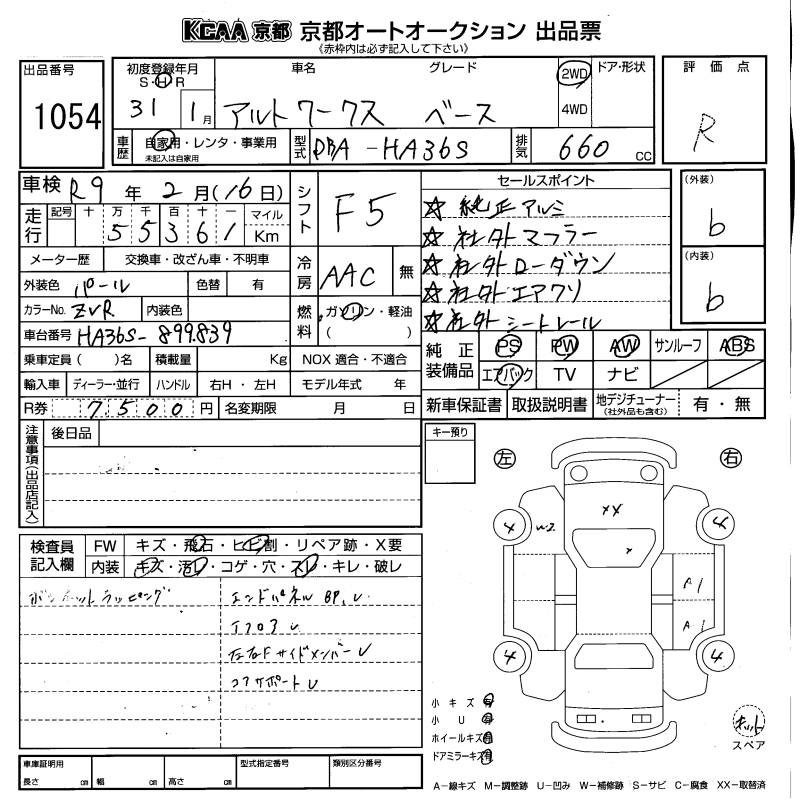 KCAA 京都 京都オートオークション 出品票
《赤枠内は必ず記入して下さい》
出品番号
1054
初度登録年月
S・H・R
31 1月
車名 グレード
アルトワークス ベース
2WD
4WD
ドア・形状
評価点
R
車歴
自家用・レンタ・事業用
未記入は自家用
型式
DBA-HA36S
排気
660 cc
車検 R9年 2月(16日)
走行
記号 十 万 千 百 十 一 マイル
5 5 3 6 1 Km
シフト
F5
セールスポイント
☆ 純正アルミ
☆ 社外マフラー
☆ 社外ローダウン
☆ 社外エアクリ
☆ 社外シートレール
(外装)
b
(内装)
b
メーター歴 交換車・改ざん車・不明車
冷房
AAC 無
外装色 パール 色替 有
カラーNo. ZVR 内装色
燃料
ガソリン・軽油
( )
車台番号 HA36S-899839
乗車定員( )名 積載量 Kg NOX 適合・不適合
輸入車 ディーラー・並行 ハンドル 右H・左H モデル年式 年
R券 7500円 名変期限 月 日
純正装備品
PS PW AW サンルーフ ABS
エアバック TV ナビ
新車保証書 取扱説明書 地デジチューナー(社外品も含む) 有・無
注意事項(出品店記入)
後日品
キー預り
左 右
検査員記入欄
FW キズ・飛石・ヒビ割・リペア跡・X要
内装 キズ・汚レ・コゲ・穴・スレ・キレ・破レ
ボンネットラッピング
エンドパネル BP, U
左右Fサイドメンバー U
コアサポート U
XX
4 W2 4
A1
A1
4 4
小キズ 有
小U 有
ホイールキズ 有
ドアミラーキズ 有
スペア
車庫証明用
長さ cm 幅 cm 高さ cm
型式指定番号
類別区分番号
A-線キズ M-調整跡 U-凹み W-補修跡 S-サビ C-腐食 XX-取替済